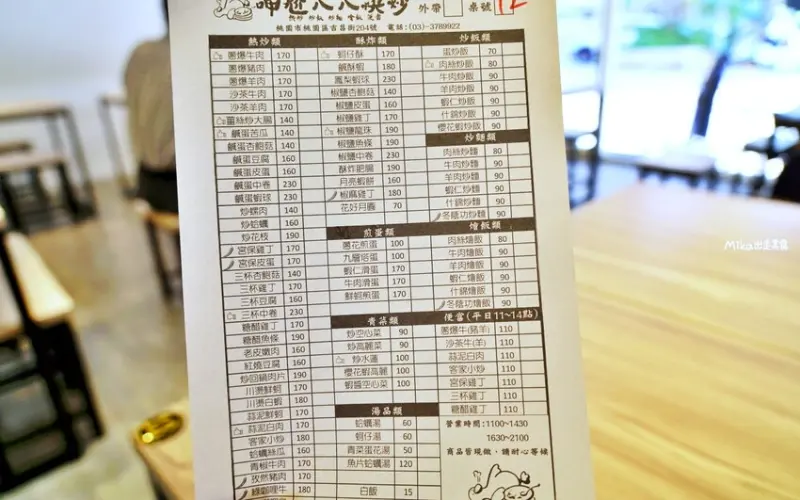 呷尬八八熱炒
熱炒 炒飯 炒麵 燴飯 便當
外帶 桌號 12
桃園市桃園區吉昌街204號 電話:(03)-3789922
熱炒類
蔥爆牛肉 170
蔥爆豬肉 170
蔥爆羊肉 170
沙茶牛肉 170
沙茶羊肉 170
薑絲炒大腸 140
鹹蛋苦瓜 140
鹹蛋杏鮑菇 140
鹹蛋豆腐 160
鹹蛋皮蛋 160
鹹蛋中卷 230
鹹蛋蝦球 230
炒螺肉 140
炒蛤蠣 160
炒花枝 190
宮保雞丁 170
宮保皮蛋 170
三杯杏鮑菇 140
三杯雞丁 170
三杯豆腐 160
三杯中卷 230
糖醋雞丁 170
糖醋魚條 190
老皮嫩肉 160
紅燒豆腐 160
炒回鍋肉片 190
川燙鮮蚵 170
川燙白蝦 180
蒜泥鮮蚵 170
蒜泥白肉 170
客家小炒 180
蛤蠣絲瓜 150
青椒牛肉 170
孜然豬肉 170
綠咖哩牛 180
酥炸類
蚵仔酥 170
鹹酥蝦 180
鳳梨蝦球 230
椒鹽杏鮑菇 140
椒鹽皮蛋 160
椒鹽雞丁 170
椒鹽龍珠 190
椒鹽魚條 190
椒鹽中卷 230
酥炸肥腸 190
月亮蝦餅 160
椒麻雞丁 180
花好月圓 70
煎蛋類
蔥花煎蛋 100
九層塔蛋 100
蝦仁滑蛋 170
牛肉滑蛋 170
鮮蚵煎蛋 170
青菜類
炒空心菜 90
炒高麗菜 90
炒水蓮 100
櫻花蝦高麗 100
蝦醬空心菜 100
湯品類
蛤蠣湯 60
蚵仔湯 60
青菜蛋花湯 50
魚片蛤蠣湯 120
白飯 15
炒飯類
蛋炒飯 70
肉絲炒飯 80
牛肉炒飯 90
羊肉炒飯 90
蝦仁炒飯 90
什錦炒飯 90
櫻花蝦炒飯 90
炒麵類
肉絲炒麵 80
牛肉炒麵 90
羊肉炒麵 90
蝦仁炒麵 90
什錦炒麵 90
冬蔭功炒麵 90
燴飯類
肉絲燴飯 80
牛肉燴飯 90
羊肉燴飯 90
蝦仁燴飯 90
什錦燴飯 90
冬蔭功燴飯 90
便當(平日11~14點)
蔥爆牛(豬羊) 110
沙茶牛(羊) 110
蒜泥白肉 110
客家小炒 110
宮保雞丁 110
三杯雞丁 110
糖醋雞丁 110
營業時間:1100~1430
1630~2100
商品皆現做,請耐心等候
Mika出走美食